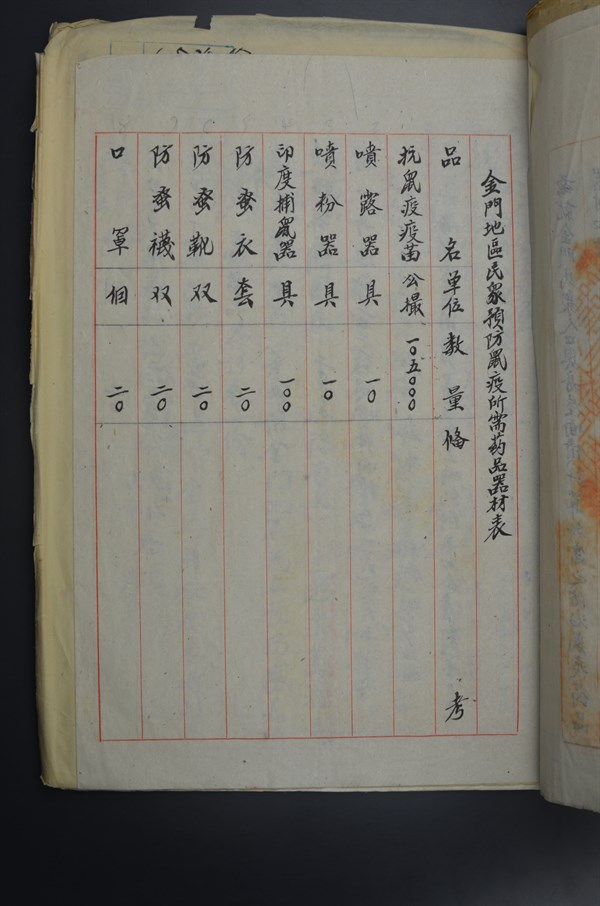 金門地區民眾預防鼠疫所需葯品器材表
品名 單位 数量 俻考
抗鼠疫疫苗 公撮 一〇五〇〇〇
噴霧器 具 一〇
噴粉器 具 一〇
印度捕鼠器 具 一〇〇
防蚤衣 套 二〇
防蚤靴 双 二〇
防蚤襪 双 二〇
口罩 個 二〇